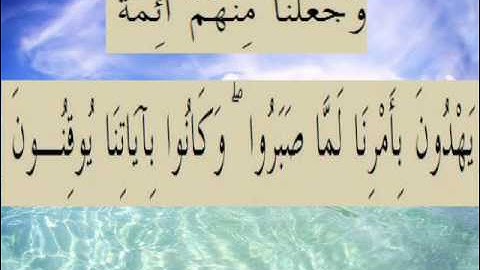 وَجَعَلْنَا مِنْهُمْ أَئِمَّةً
يَهْدُونَ بِأَمْرِنَا لَمَّا صَبَرُوا ۖ وَكَانُوا بِآيَاتِنَا يُوقِنُـــونَ